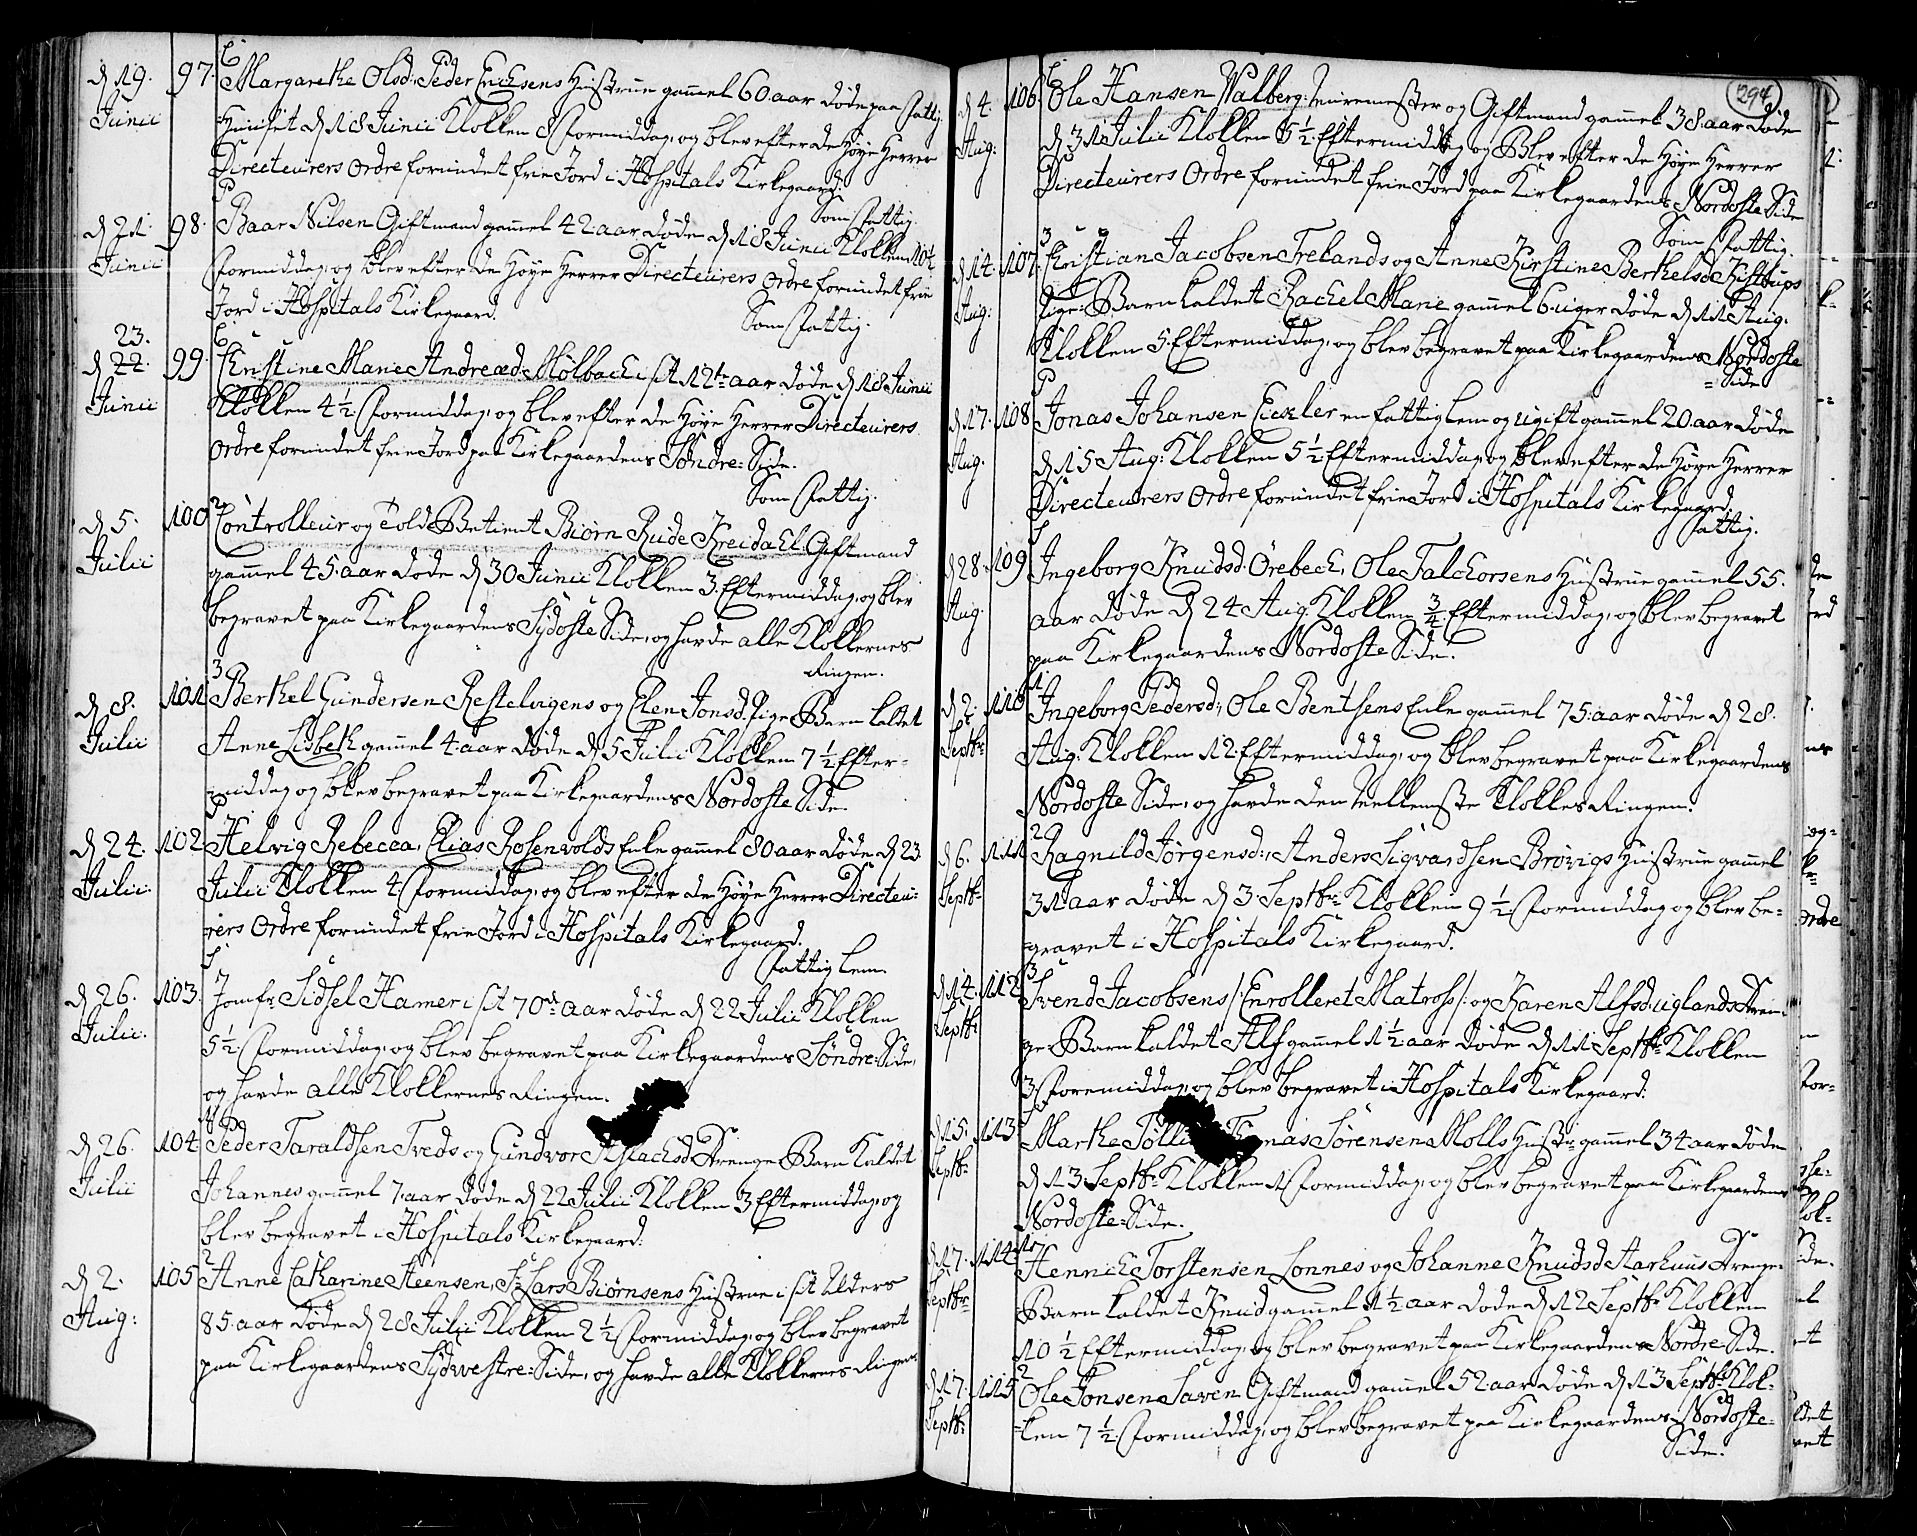 d 19. 97. Margarethe Olsd: Peder Erichsens Hustrue gammel 60 aar døde paa Fattig
Junii Huuset d 18 Junii Klokken 8 Formiddag, og blev efter de Høye Herrer
Directeurers Ordre forundet frie Jord i Hospitals Kirkegaard.
d 21. 98. Baar Nilsen Giftmand gammel 42 aar døde d 18 Junii Klokken 10½
Som Fattig.
Junii Formiddag, og blev efter de Høye Herrer Directeurers Ordre forundet frie
Jord i Hospitals Kirkegaard.
Som Fattig.
23.
d 22. 99. Christine Marie Andreæd. Mølbach i sit 12te aar døde d 18 Junii
Junii Klokken 4½ Formiddag, og blev efter de Høye Herrer Directeurers
Ordre forundet frie Jord paa Kirkegaardens Søndre-Side.
Som Fattig.
d 5. 100 Controlleur og Told-Betient Biørn Rude Kreidahl Giftmand
Julii gammel 45 aar døde d 30 Junii Klokken 3. Eftermiddag, og blev
begravet paa Kirkegaardens Sydoste Side, og havde alle Klokkernes
Ringen.
d 8. 101 Berthel Gundersen Restelvigens og Elen Jonsd. Pige-Barn kaldet
Julii Anne Lisbeth gammel 4. aar døde d 5 Julii Klokken 7½ Efter-
middag og blev begravet paa Kirkegaardens Nordoste Side
d 24. 102 Helvig Rebecca, Elias Rosenvolds Enke gammel 80 aar døde d 23
Julii. Julii Klokken 4. Formiddag, og blev efter de Høye Herrer Directeu-
rers Ordre forundet frie Jord i Hospitals Kirkegaard.
Fattig Lem.
d 26. 103. Jomfr. Sidsel Hamer i sit 70de aar døde d 22 Julii Klokken
Julii. 5½ Formiddag, og blev begravet paa Kirkegaardens Søndre-Side,
og havde alle Klokkernes Ringen.
d 26. 104 Peder Taraldsen Tveds og Gundvor Aslachsd Drenge Barn kaldet
Julii Johannes gammel 7. aar døde d 22 Julii Klokken 3 Eftermiddag, og
blev begravet i Hospitals Kirkegaard.
d 2. 105 Anne Catharine Steensen, Sr. Lars Biørnsens Hustrue i sit Alders
Aug: 85. aar døde d 28 Julii Klokken 2½ Formiddag, og blev begravet
paa Kirkegaardens Sydvestre-Side, og havde alle Klokkernes Ringen.
294
d 4. 106. Ole Hansen Walberg: Muremester og Giftmand gammel 38. aar døde
Aug: d 31 Julii Klokken 5½ Eftermiddag og Blev efter de Høye Herrer
Directeurers Ordre forundet frie Jord paa Kirkegaardens Nordoste Side
Som Fattig.
d 14. 107 Christian Jacobsen Trelands og Anne Kirstine Berthelsd. Kistrups
Aug: Pige-Barn kaldet Rachel Marie gammel 6. uger døde d 11 Aug.
Klokken 5. Eftermiddag, og blev begravet paa Kirkegaardens Nordoste
Side
d 17. 108 Jonas Johansen Eickler en fattig Lem og ugift gammel 20. aar døde
Aug. d 15 Aug: Klokken 5½ Eftermiddag, og blev efter de Høye Herrer
Directeurers Ordre forundet frie Jord i Hospitals Kirkegaard.
Fattig.
d 28. 109 Ingeborg Knudsd. Örebech, Ole Falchorsens Hustrue gammel 55.
Aug. aar døde d 24 Aug. Klokken ¾ Eftermiddag, og blev begravet
paa Kirkegaardens Nordoste Side.
d 2. 110 Ingeborg Pedersd, Ole Bentsens Enke gammel 75. aar døde d 28.
Septbr: Aug. Klokken 12. Eftermiddag, og blev begravet paa Kirkegaardens
Nordoste Side, og havde den Mellemste Klokkes Ringen.
d 6. 111 Ragnild Jørgensd, Anders Sigvardsen Brøvigs Hustrue gammel
Septbr 31 aar døde d 3. Septbr: Klokken 9½ Formiddag og blev be-
gravet i Hospitals Kirkegaard.
d 14. 112 Svend Jacobsens /: Enrolleret Matross :/ og Karen Alfsd. Uglands Dren-
Septbr ge-Barn kaldet Alf gammel 1½ aar døde d 11 Septbr Klokken
3 Foremiddag, og blev begravet i Hospitals Kirkegaard.
d 15. 113 Marthe Sørensen Molls Hustr: gammel 34 aar døde
Septbr d 13 Septbr Klokken 1 Formiddag, og blev begravet paa Kirkegaardens
Nordoste-Side.
d 17. 114 Hennich Torstensen Lonnes og Johanne Knudsd Aarhuus Drenge-
Septbr Barn kaldet Knud gammel 1½ aar døde d 12 Septbr Klokken
10½ Eftermiddag, og blev begravet paa Kirkegaardens Nordre Side.
d 17. 115 Ole Jonsen Saven Giftmand gammel 52 aar døde d 13 Septbr Klok-
Septbr: ken 7½ Formiddag, og blev begravet paa Kirkegaardens Nordoste-
Side.